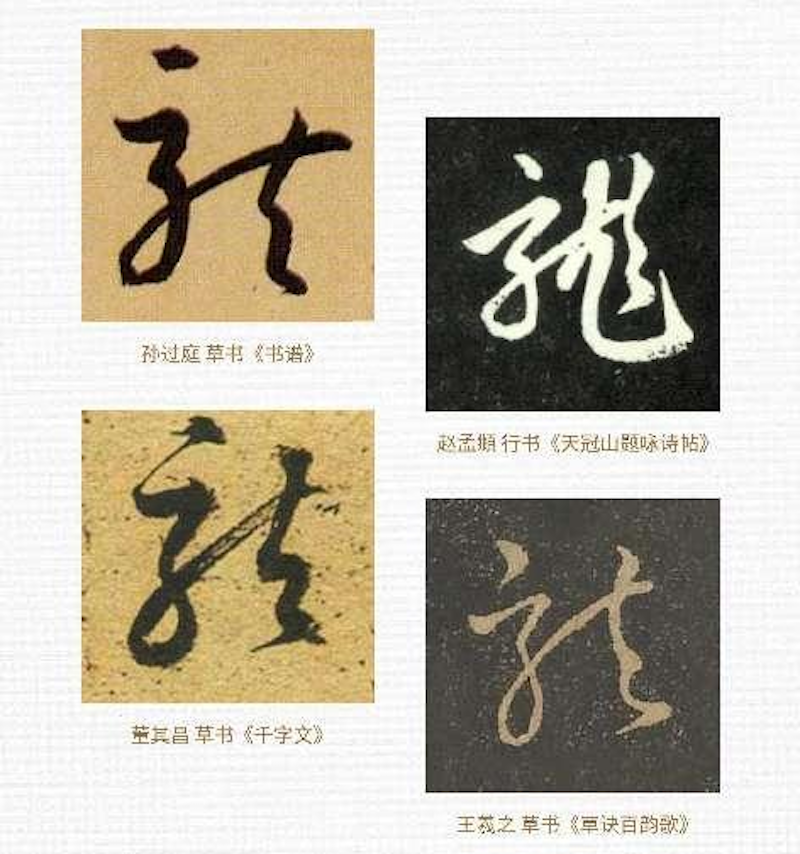 龍
孙过庭 草书《书谱》
龍
赵孟頫 行书《天冠山题咏诗帖》
龍
董其昌 草书《千字文》
龍
王羲之 草书《草诀百韵歌》